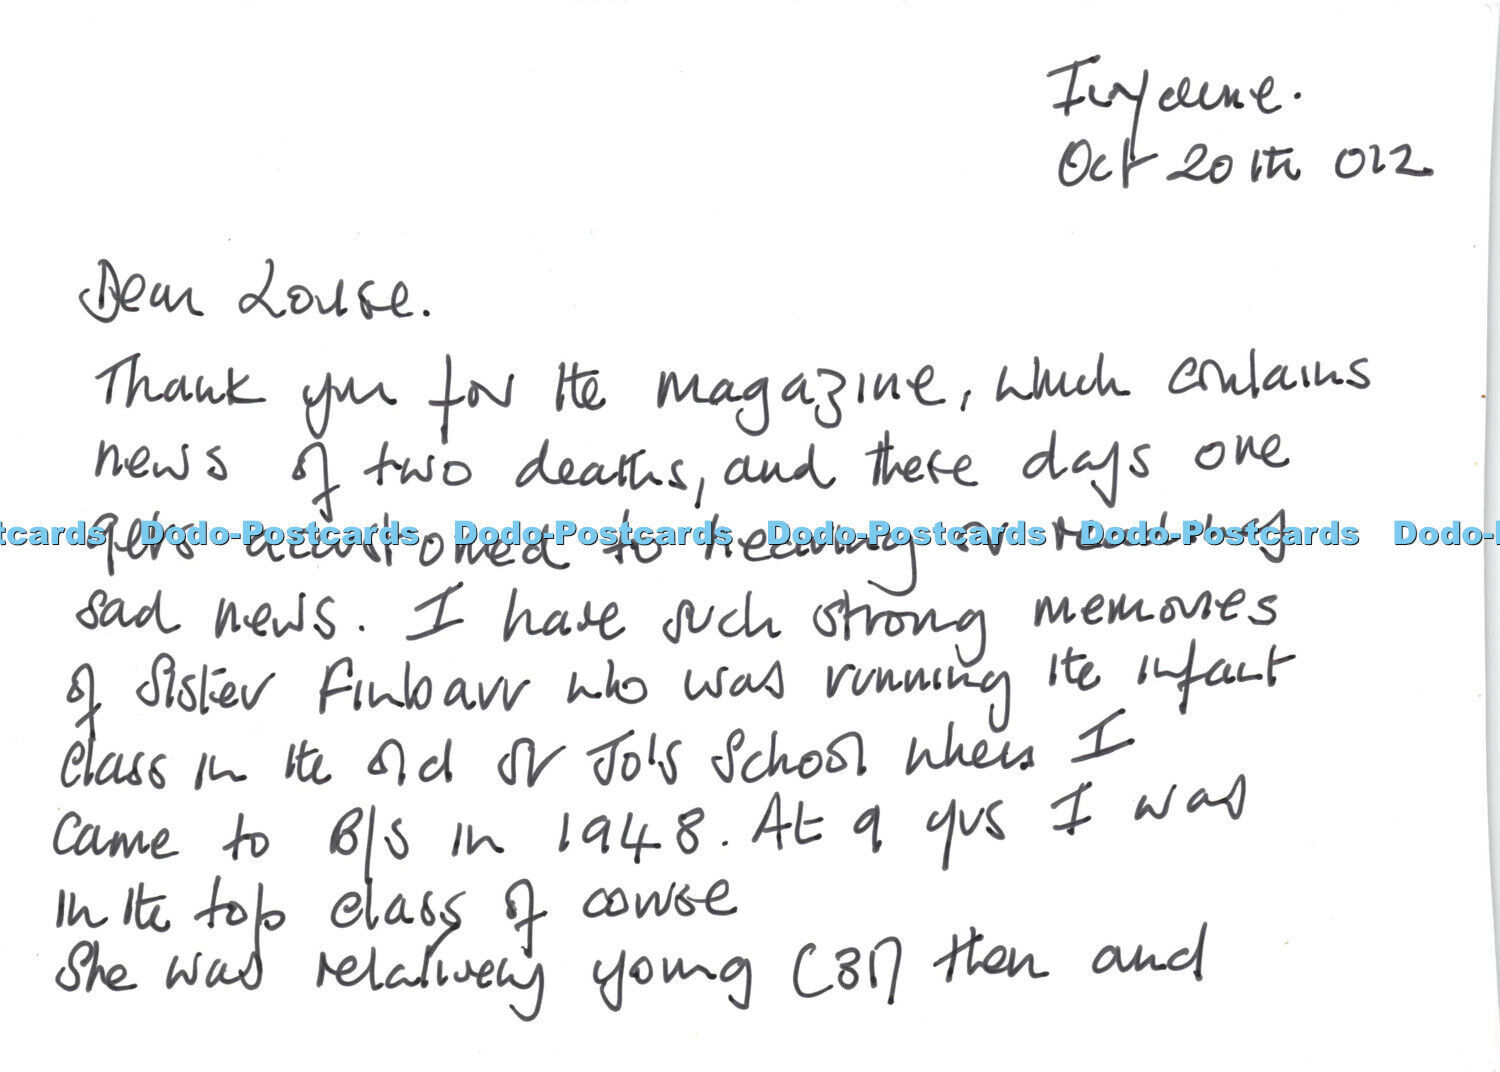 Ivydene.
Oct 20th 012
Dear Louise.
Thank you for the magazine, which contains
news of two deaths, and these days one
gets accustomed to hearing or reading
tcards Dodo-Postcards Dodo-Postcards Dodo-Postcards Dodo-Postcards Dodo-
sad news. I have such strong memories
of Sister Finbarr who was running the infant
class in the old St Jo's School when I
came to B/S in 1948. At 9 yrs I was
in the top class of course
She was relatively young (31) then and